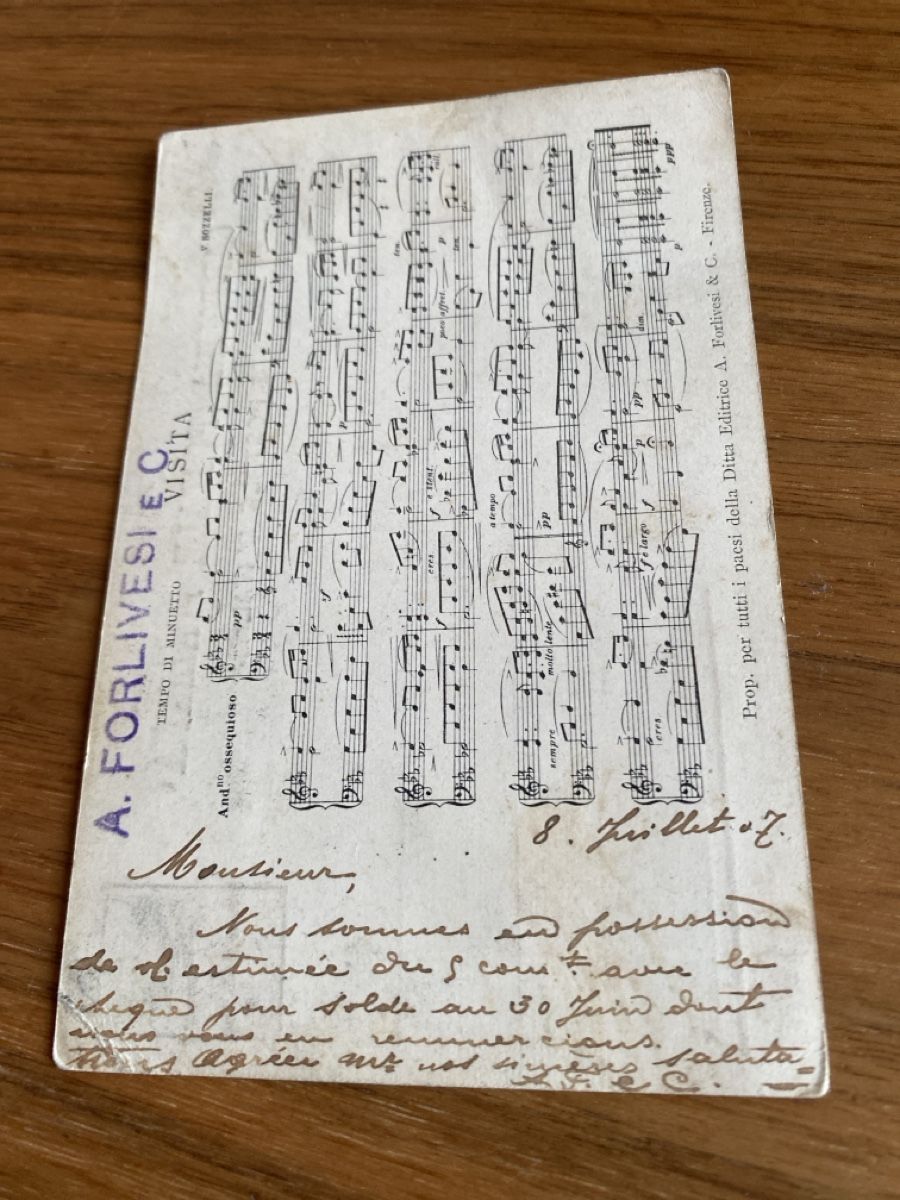 A. FORLIVESI E C.
VISITA
TEMPO DI MINUETTO
V BOZZELLI.
And.no ossequioso
pp
sf
p
cres.
f
e stent.
poco affret.
ten.
p
ten.
rall.
sempre
molto lento
a tempo
pp
cres.
f e largo
f
p
pp
dim.
p
ppp
Prop. per tutti i paesi della Ditta Editrice A. Forlivesi & C. - Firenze.
8. Juillet 07.
Monsieur,
Nous sommes en possession
de estimée du 5 cour.t avec le
cheque pour solde au 30 Juin dont
nous vous en remmercions.
Agréer Mr nos sinceres saluta
tions
A. F. e C.